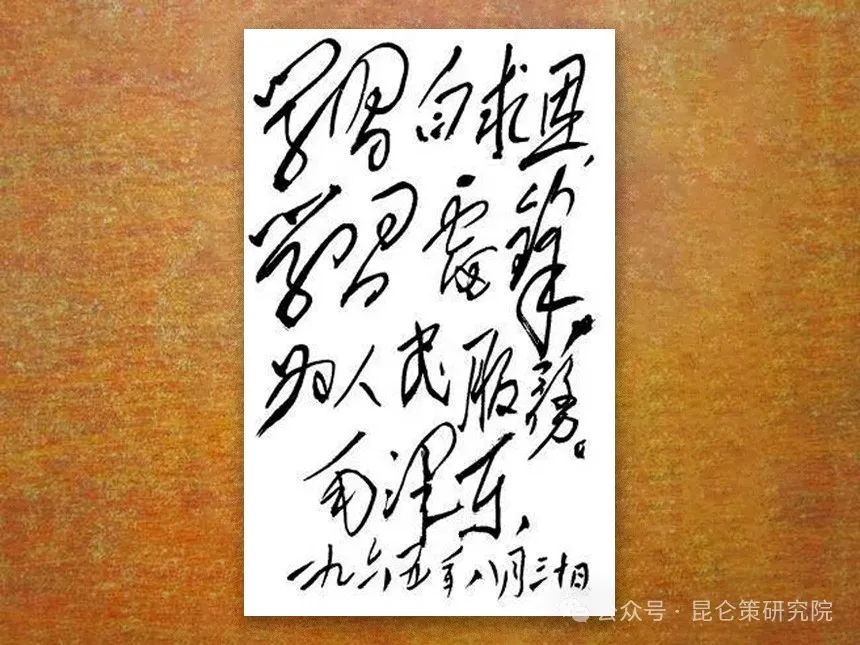 学習白求恩,
学習雷鋒。
为人民服務。
毛泽东,
一九六五年八月三十日
公众号 · 昆仑策研究院